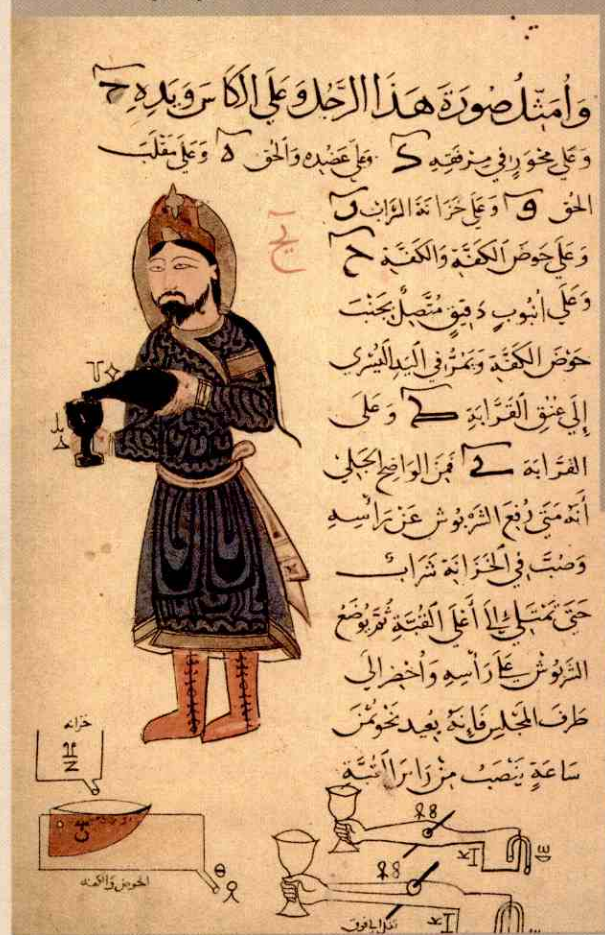 وَأُمَثِّلُ صُورَةَ هَذَا الرَّجُلِ وَعَلَى الكَاسِ وَيَدِهِ ح
وَعَلَى مِحْوَرٍ فِي مِرْفَقِهِ ك وَعَلَى عَضُدِهِ وَالحُقِّ ه وَعَلَى مَقْلَبِ
الحُقِّ و وَعَلَى خَزَانَةِ الشَّرَابِ
وَعَلَى حَوْضِ الكَفَّةِ وَالكَفَّةِ ح
وَعَلَى أُنْبُوبٍ دَقِيقٍ مُتَّصِلٍ بِجَنْبِ
حَوْضِ الكَفَّةِ وَيَمُرُّ فِي اليَدِ اليُسْرَى
إِلَى عُنُقِ القَرَّابَةِ وَعَلَى
القَرَّابَةِ فَمِنَ الوَاضِحِ الجَلِي
أَنَّهُ مَتَى رُفِعَ الشَّرْبُوشُ عَنْ رَأْسِهِ
وَصُبَّ فِي الخَزَانَةِ شَرَابٌ
حَتَّى تَمْتَلِي إِلَى أَعْلَى القُبَّةِ ثُمَّ يُوضَعُ
الشَّرْبُوشُ عَلَى رَأْسِهِ وَأُحْضِرَ إِلَى
طَرَفِ المَجْلِسِ فَإِنَّهُ بُعَيْدَ نَحْوِ ثُمْنِ
سَاعَةٍ يَنْصَبُّ مِنْ
خزانه
الحوض والكفه